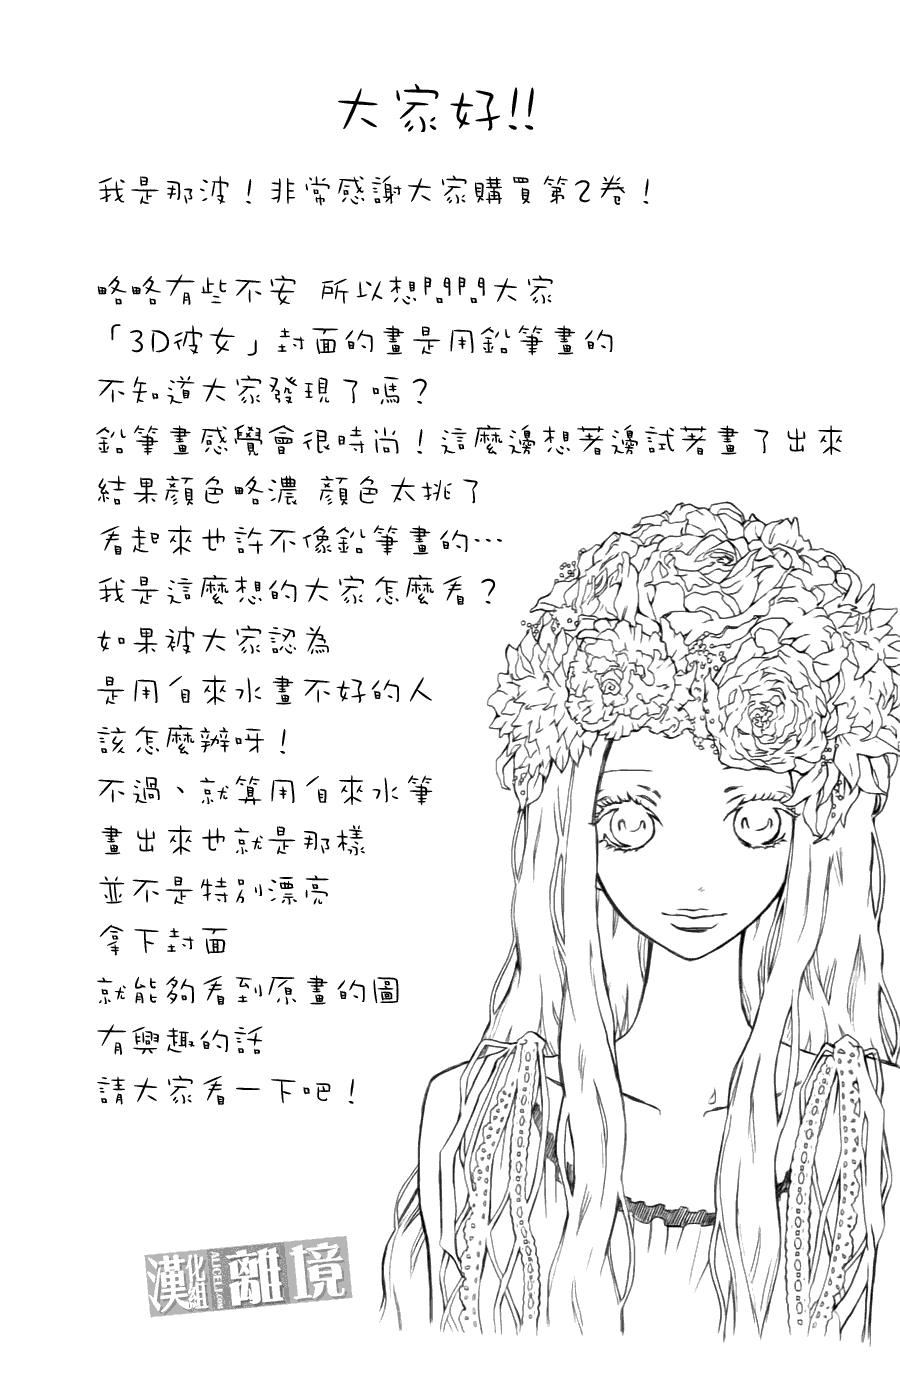 大家好!!
我是那波！非常感謝大家購買第2卷！
略略有些不安 所以想問問大家
「3D彼女」封面的畫是用鉛筆畫的
不知道大家發現了嗎？
鉛筆畫感覺會很時尚！這麼邊想著邊試著畫了出來
結果顏色略濃 顏色太挑了
看起來也許不像鉛筆畫的…
我是這麼想的大家怎麼看？
如果被大家認為
是用自來水畫不好的人
該怎麼辦呀！
不過、就算用自來水筆
畫出來也就是那樣
並不是特別漂亮
拿下封面
就能夠看到原畫的圖
有興趣的話
請大家看一下吧！
漢化組 ALICELJ.COM 離境